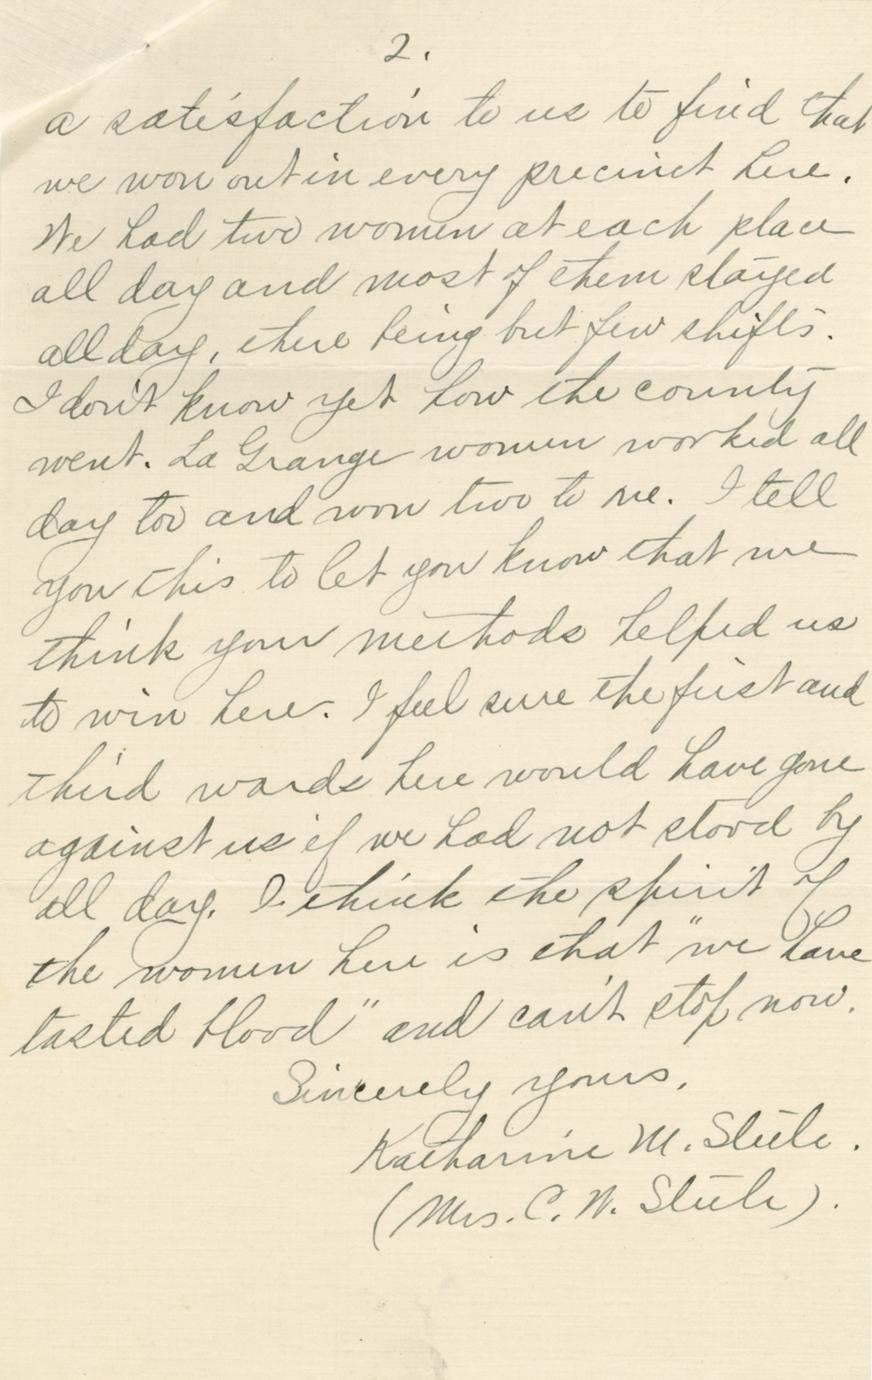 2.
a satisfaction to us to find that
we won out in every precinct here.
We had two women at each place
all day and most of them stayed
all day, there being but few shifts.
I don't know yet how the county
went. La Grange women worked all
day too and won two to one. I tell
you this to let you know that we
think your methods helped us
to win here. I feel sure the first and
third wards here would have gone
against us if we had not stood by
all day. I think the spirit of
the women here is that "we have
tasted blood" and can't stop now.
Sincerely yours,
Katharine M. Steele.
(Mrs. C. W. Steele).